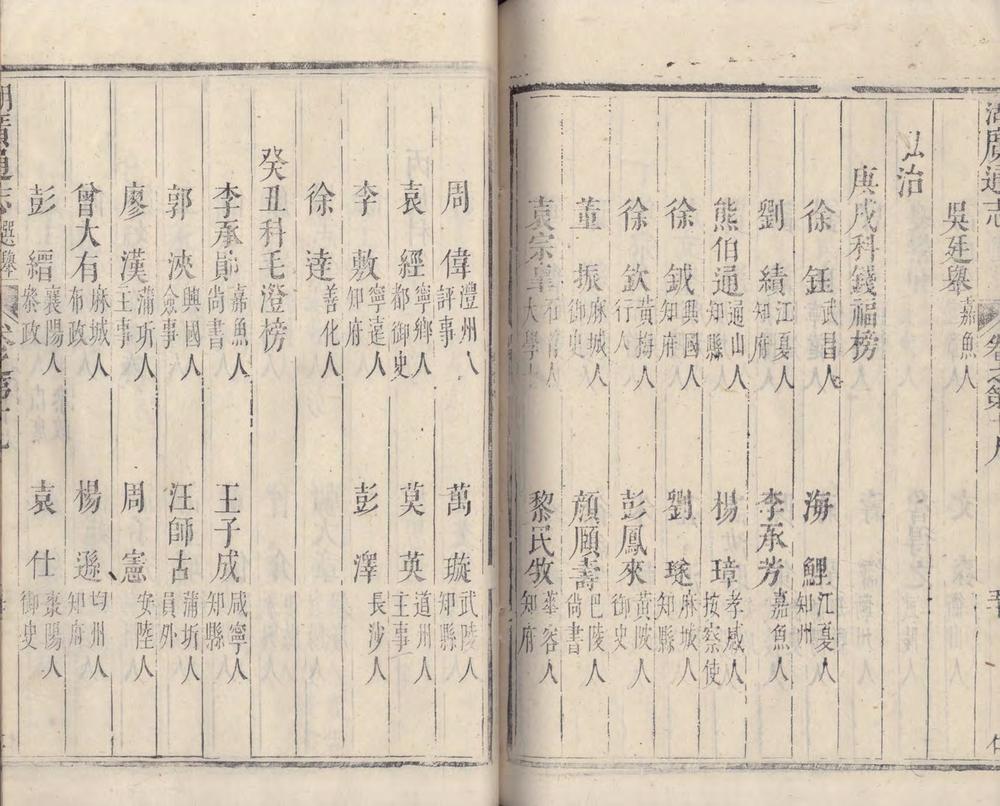 湖廣通志
卷之第十九
吳廷舉嘉魚人
弘治
庚戌科錢福榜
徐鈺武昌人 海鯉江夏人知州
劉績江夏人知府 李承芳嘉魚人
熊伯通通山人知縣 楊璋孝感人按察使
徐鉞興國人知府 劉璲麻城人知縣
徐欽黃梅人行人 彭鳳來黃陂人御史
董振麻城人御史 顏頤壽巴陵人尚書
袁宗皐石首人大學士 黎民牧華容人知府
周偉澧州人評事 萬璇武陵人知縣
袁經寧鄉人都御史 莫英道州人主事
李敷寧遠人知府 彭澤長沙人
徐達善化人
癸丑科毛澄榜
李承勛嘉魚人尚書 王子成咸寧人知縣
郭浹興國人僉事 汪師古蒲圻人員外
廖漢蒲圻人主事 周憲安陸人
曾大有麻城人布政 楊遜均州人知府
彭縉襄陽人叅政 袁仕棗陽人御史
湖廣通志 選舉 卷之第十九